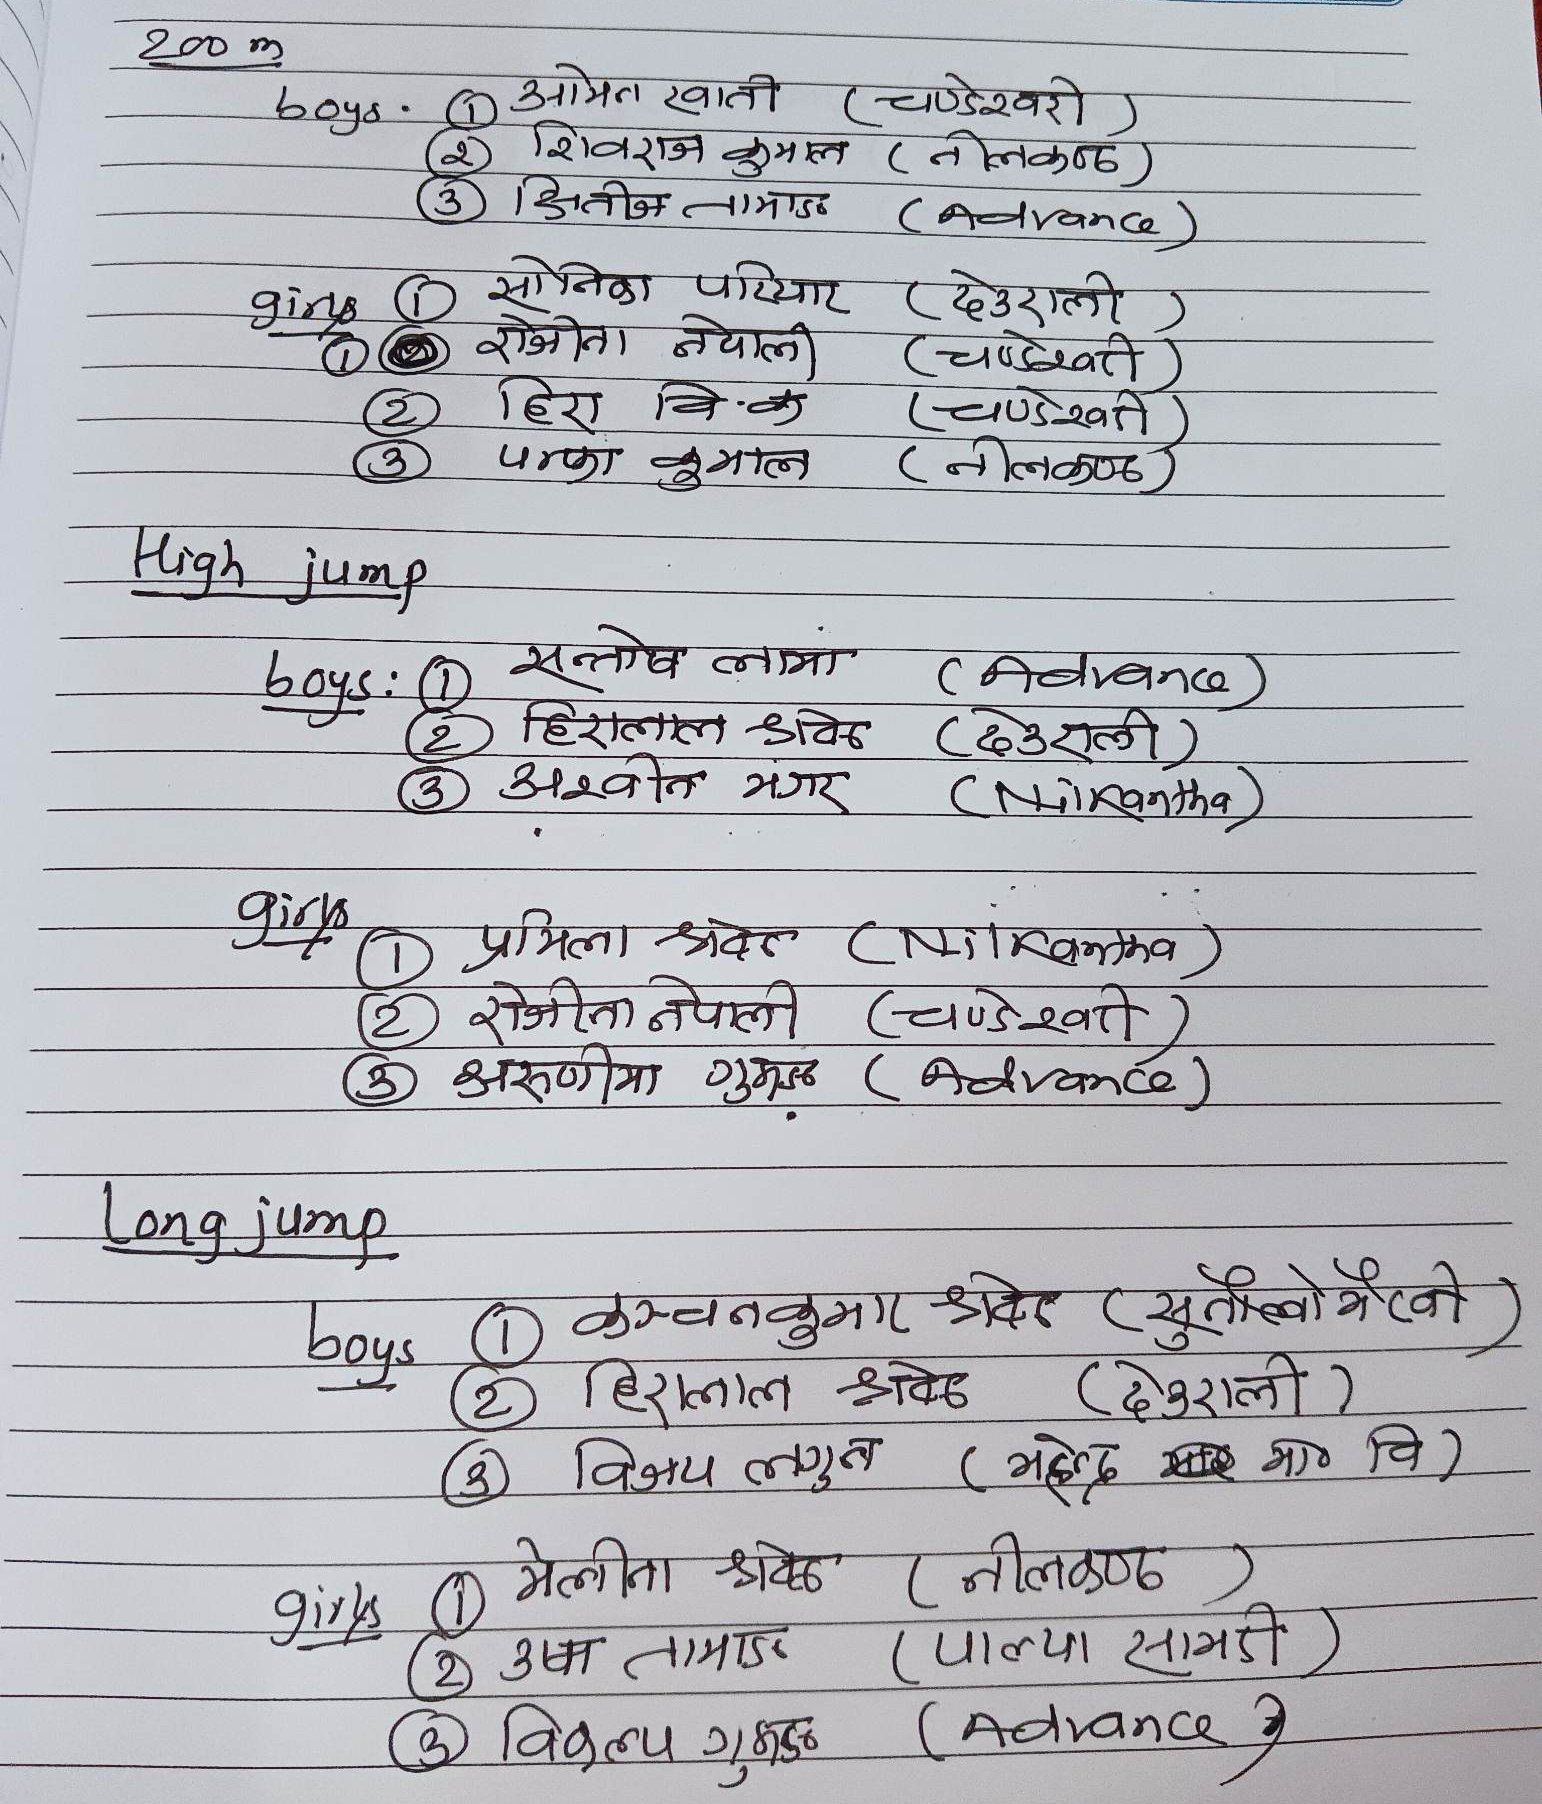 200 m
boys. ① ओमन खाती (चण्डेश्वरी)
② शिवराज कुमाल (नीलकण्ठ)
③ क्षितीज तामाङ (Advance)
girls ① सोनिका परियार (देउराली)
① रोजीना नेपाली (चण्डेश्वरी)
② हिरा वि.क (चण्डेश्वरी)
③ पम्फा कुमाल (नीलकण्ठ)
High jump
boys: ① सन्तोष लामा (Advance)
② हिरालाल श्रेष्ठ (देउराली)
③ अश्वीन मगर (Nilkantha)
girls
① प्रमिला श्रेष्ठ (Nilkantha)
② रोजीना नेपाली (चण्डेश्वरी)
③ अरुणीमा गुरुङ (Advance)
Long jump
boys ① कञ्चनकुमार श्रेष्ठ
② हिरालाल श्रेष्ठ (देउराली)
③ विजय लगुन (महेन्द्र मा० वि)
girls ① मेलीना श्रेष्ठ (नीलकण्ठ)
② उषा तामाङ (पाल्पा सामडी)
③ विकल्प गुरुङ (Advance)